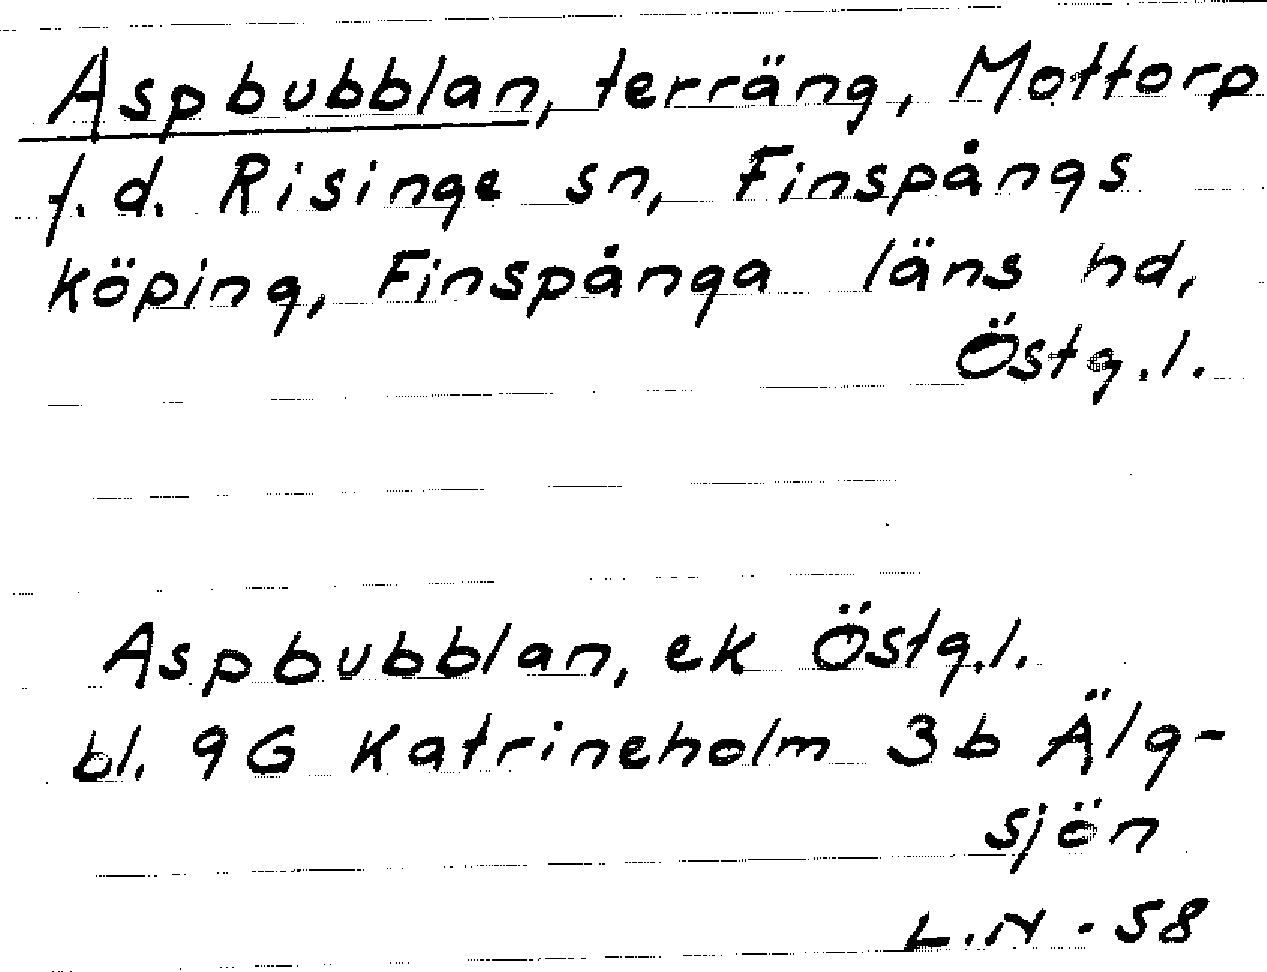 Aspbubblan, terräng, Mottorp
f.d. Risinge sn, Finspångs
köping, Finspånga läns hd,
Östg.l.
Aspbubblan, ek Östg.l.
bl. 9G Katrineholm 3b Älg-
sjön
L.N - 58